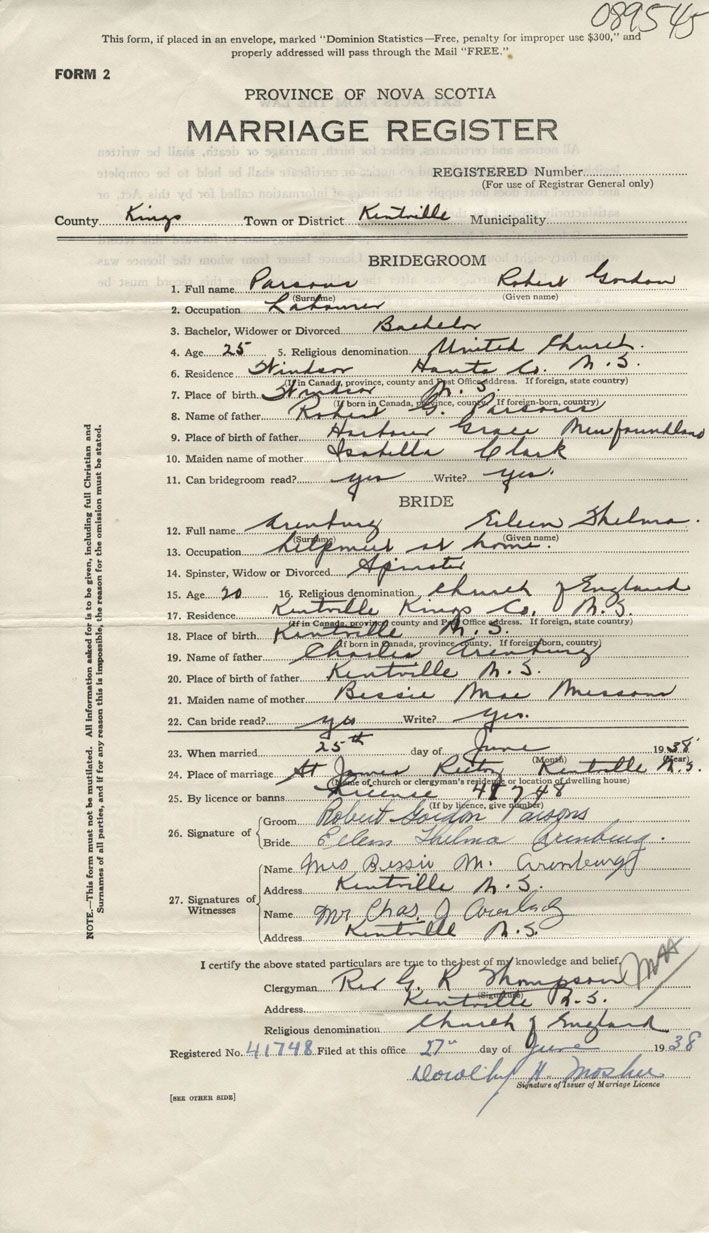 089545
This form, if placed in an envelope, marked "Dominion Statistics—Free, penalty for improper use $300," and
properly addressed will pass through the Mail "FREE."
FORM 2
PROVINCE OF NOVA SCOTIA
MARRIAGE REGISTER
REGISTERED Number
(For use of Registrar General only)
County Kings Town or District Kentville Municipality
BRIDEGROOM
1. Full name Parsons Robert Gordon
(Surname) (Given name)
2. Occupation Labourer
3. Bachelor, Widower or Divorced Bachelor
4. Age 25 5. Religious denomination United Church.
6. Residence Windsor Hants Co. N.S.
(If in Canada, province, county and Post Office address. If foreign, state country)
7. Place of birth Windsor N.S.
(If born in Canada, province, county. If foreign-born, country)
8. Name of father Robert G. Parsons
9. Place of birth of father Harbour Grace Newfoundland
10. Maiden name of mother Isabella Clark
11. Can bridegroom read? yes Write? yes.
BRIDE
12. Full name Arenburg Eileen Thelma.
(Surname) (Given name)
13. Occupation helpmeet at home.
14. Spinster, Widow or Divorced Spinster
15. Age 20 16. Religious denomination Church of England
17. Residence Kentville Kings Co. N.S.
(If in Canada, province county and Post Office address. If foreign, state country)
18. Place of birth Kentville N.S.
(If born in Canada, province, county. If foreign-born, country)
19. Name of father Charles Arenburg
20. Place of birth of father Kentville N.S.
21. Maiden name of mother Bessie Mae
22. Can bride read? yes Write? yes.
23. When married 25th day of June 1938
(Month) (Year)
24. Place of marriage St James Kentville N.S.
(Name of church or clergyman's residence or location of dwelling house)
25. By licence or banns Licence 41748
(If by licence, give number)
26. Signature of Groom Robert Gordon Parsons
Bride Eileen Thelma Arenburg.
27. Signatures of Witnesses
Name Mrs Bessie M. Arenburg
Address Kentville N.S.
Name Mr Chas. J Arenburg
Address Kentville N.S.
I certify the above stated particulars are true to the best of my knowledge and belief.
Clergyman Rev G. R Thompson
(Signature)
Address Kentville N.S.
Religious denomination Church of England
Registered No. 41748 Filed at this office 27th day of June 1938
Dorothy H. Mosher
Signature of Issuer of Marriage Licence
[SEE OTHER SIDE]
NOTE.—This form must not be mutilated. All information asked for is to be given, including full Christian and
Surnames of all parties, and if for any reason this is impossible, the reason for the omission must be stated.